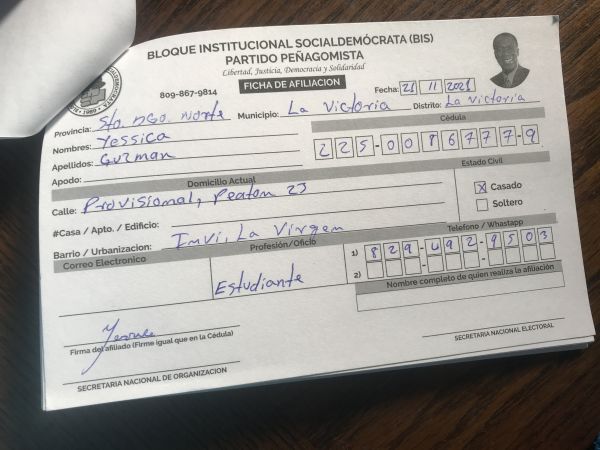 BLOQUE INSTITUCIONAL SOCIALDEMÓCRATA (BIS)
PARTIDO PEÑAGOMISTA
Libertad, Justicia, Democracia y Solidaridad
809-867-9814 FICHA DE AFILIACION Fecha: 21 11 2021
Provincia: Sto. DGo. Norte Municipio: La Victoria Distrito: La victoria
Nombres: Yessica Cédula
Apellidos: Guzman 225-0086777-9
Apodo:
Domicilio Actual Estado Civil
Calle: Provisional, Peaton 23 X Casado
#Casa / Apto. / Edificio: Soltero
Barrio / Urbanizacion: Invi, La Virgen
Correo Electronico Profesión/Oficio Telefono / Whastapp
Estudiante 1) 829-492-9503
2)
Nombre completo de quien realiza la afiliación
Firma del afiliado (Firme igual que en la Cédula)
SECRETARIA NACIONAL DE ORGANIZACION SECRETARIA NACIONAL ELECTORAL